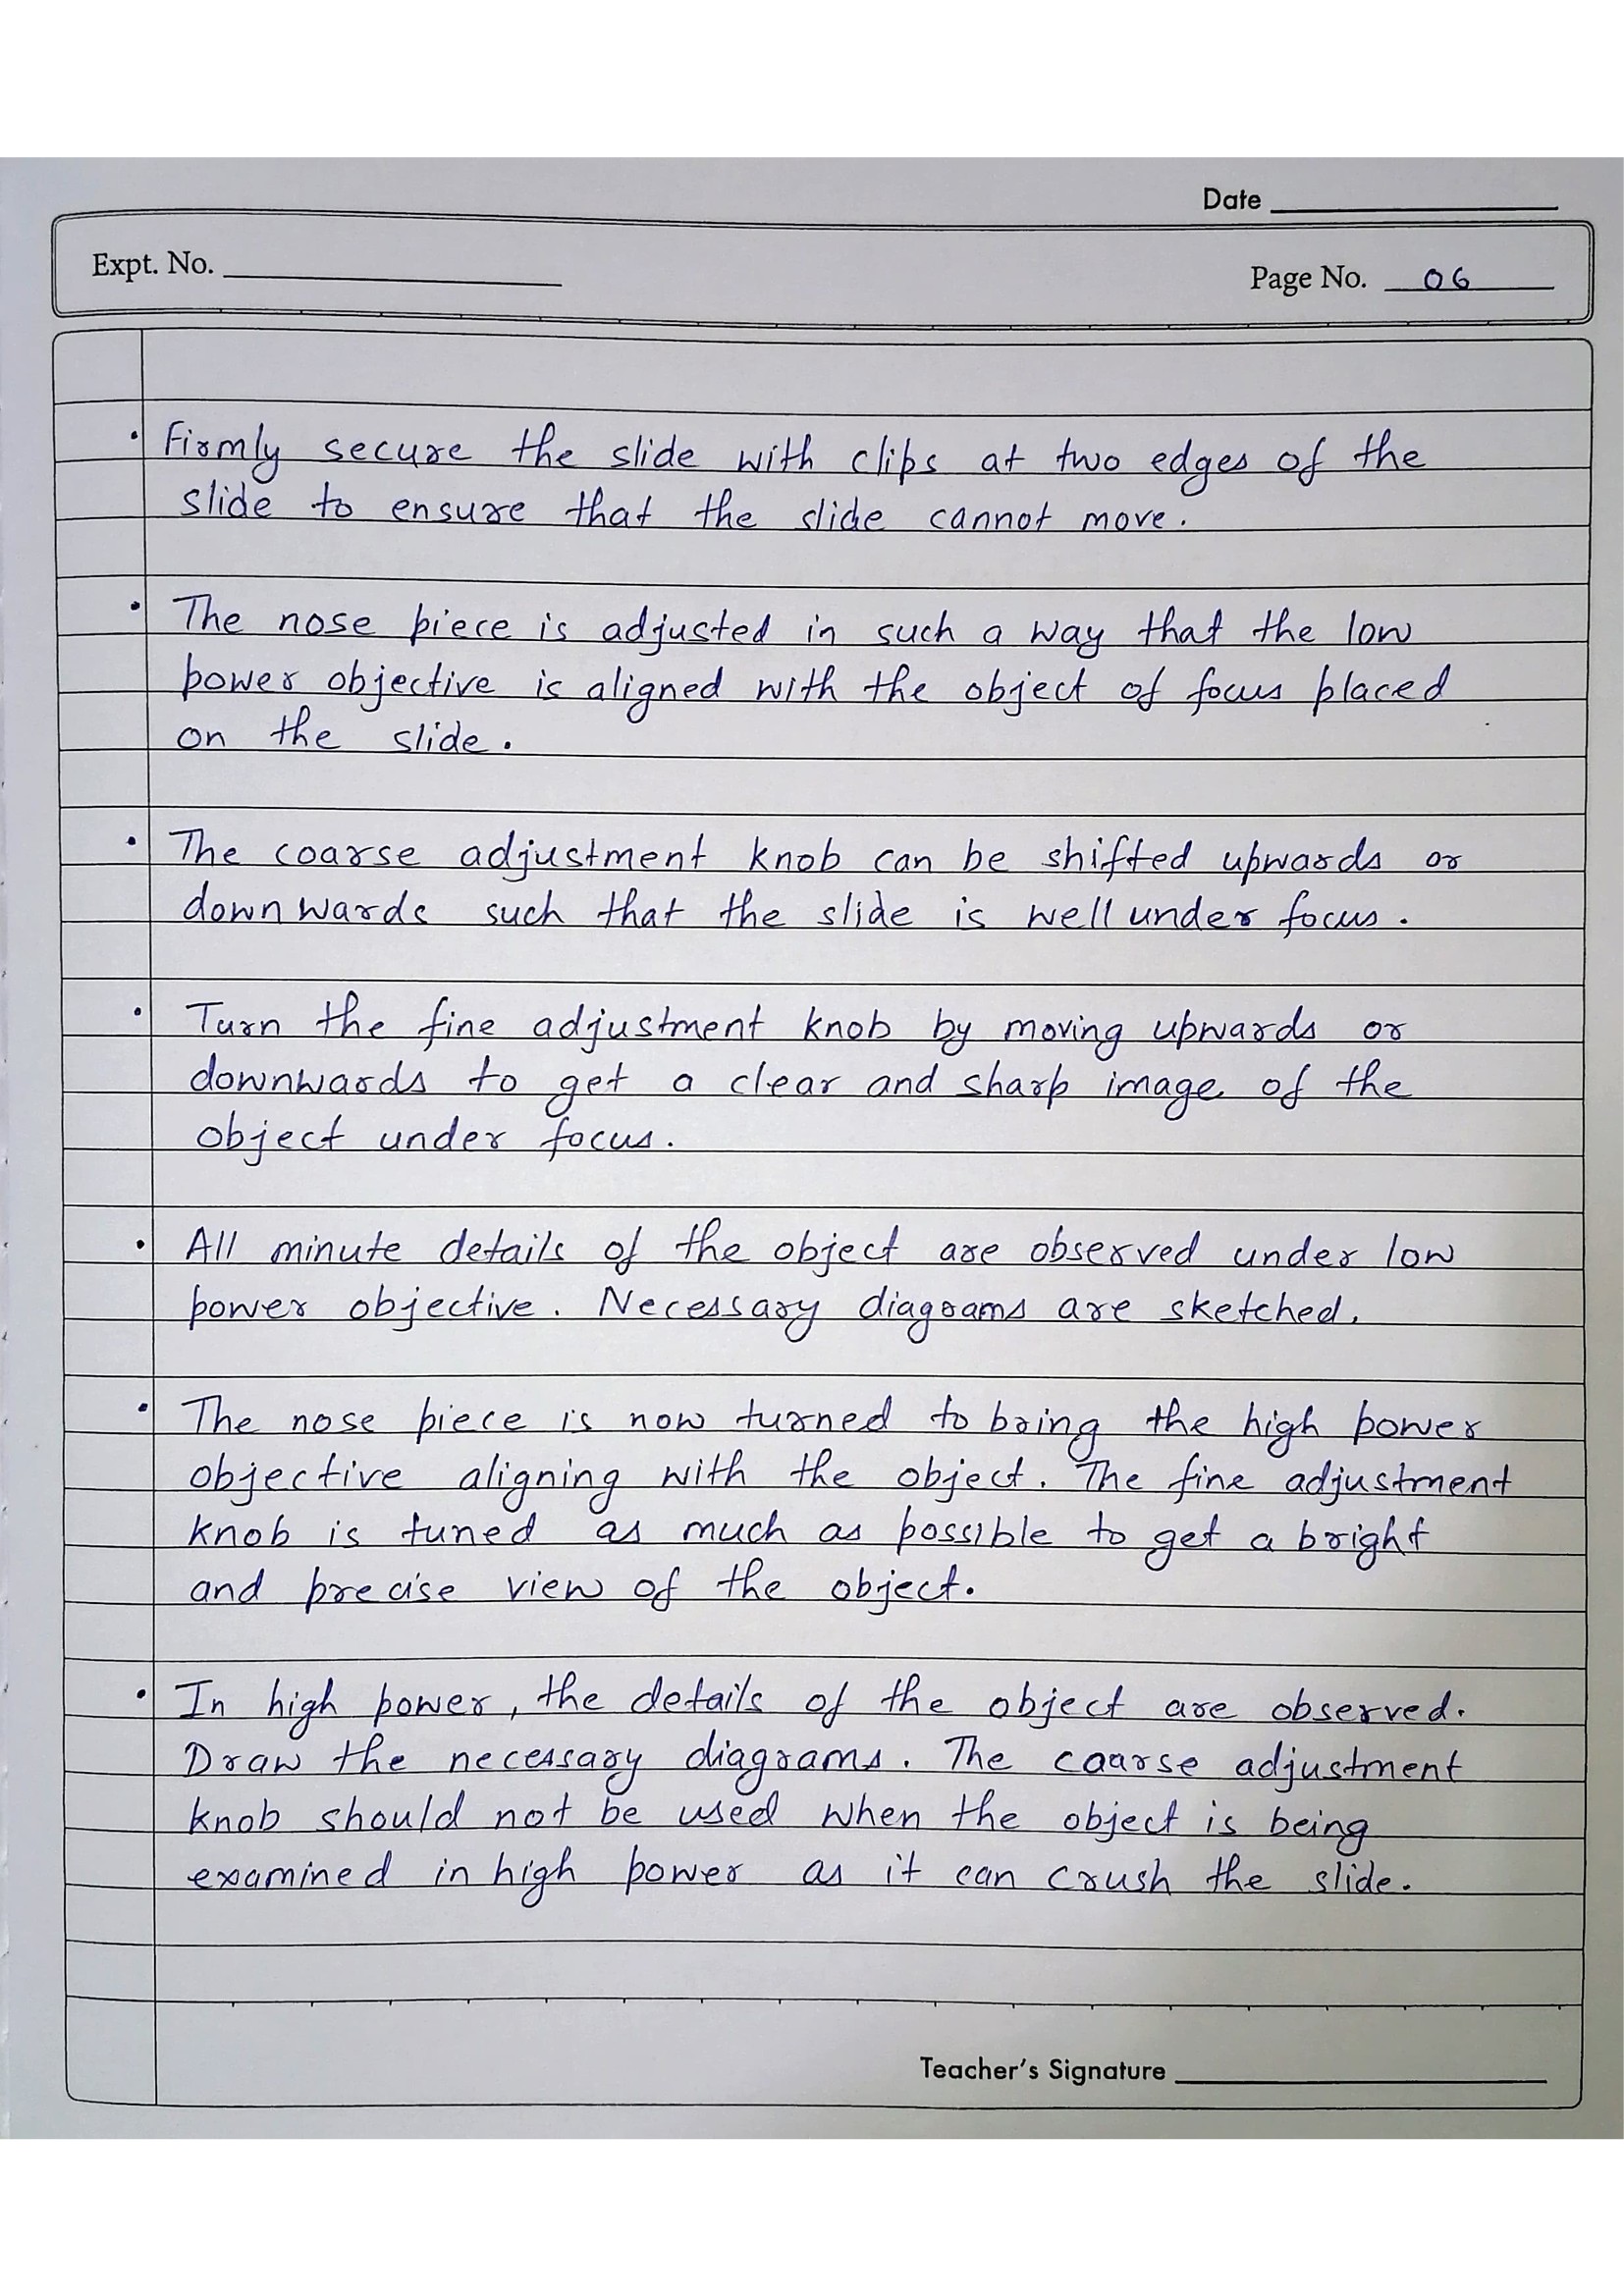 Date
Expt. No.
Page No. 06
• Firmly secure the slide with clips at two edges of the
slide to ensure that the slide cannot move.
• The nose piece is adjusted in such a way that the low
power objective is aligned with the object of focus placed
on the slide.
• The coarse adjustment knob can be shifted upwards or
downwards such that the slide is well under focus.
• Turn the fine adjustment knob by moving upwards or
downwards to get a clear and sharp image of the
object under focus.
• All minute details of the object are observed under low
power objective. Necessary diagrams are sketched.
• The nose piece is now turned to bring the high power
objective aligning with the object. The fine adjustment
knob is tuned as much as possible to get a bright
and precise view of the object.
• In high power, the details of the object are observed.
Draw the necessary diagrams. The coarse adjustment
knob should not be used when the object is being
examined in high power as it can crush the slide.
Teacher's Signature